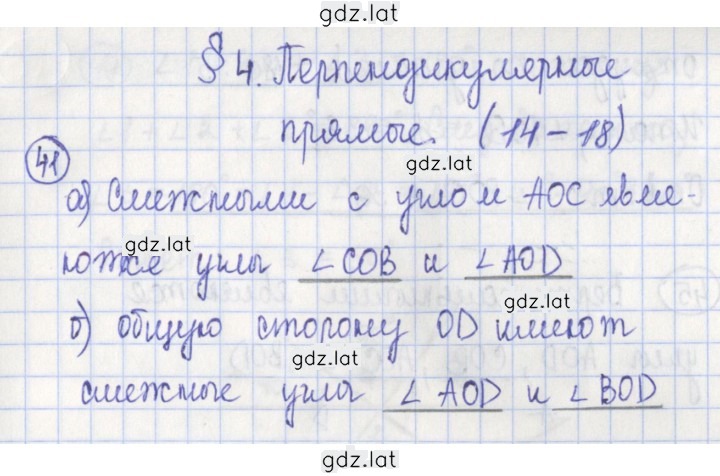 gdz.lat
§ 4. Перпендикулярные
прямые. (14-18)
gdz.lat
41
а) Смежными с углом AOC явля-
gdz.lat
ются углы ∠COB и ∠AOD
gdz.lat
б) общую сторону OD имеют
gdz.lat
смежные углы ∠AOD и ∠BOD
gdz.lat